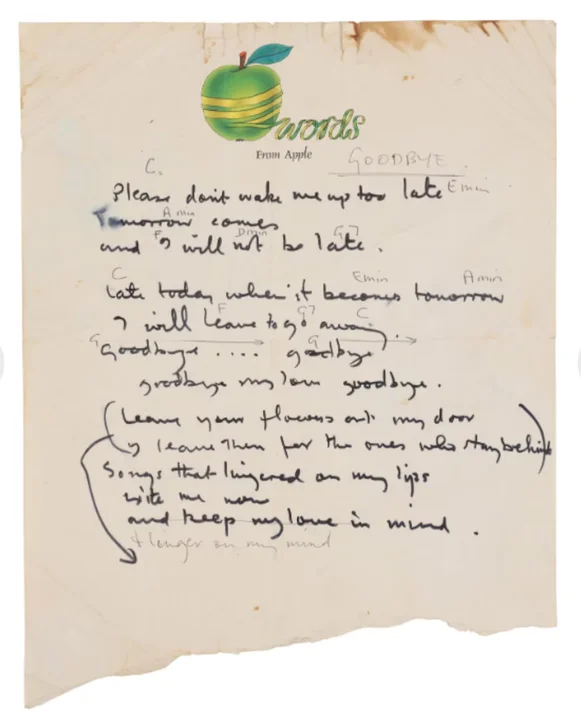 words
From Apple
GOODBYE.
C.
Please don't wake me up too late Emin
A min
Tomorrow comes
F Dmin G7
and I will not be late.
C Emin Amin
Late today when it becomes tomorrow
F G7 C
I will leave to go away.
G G
Goodbye .... goodbye
goodbye my love goodbye.
(Leave your flowers at my door)
I leave them for the ones who stay behind
Songs that lingered on my lips
me now
and keep my love in mind.
+ longer on my mind